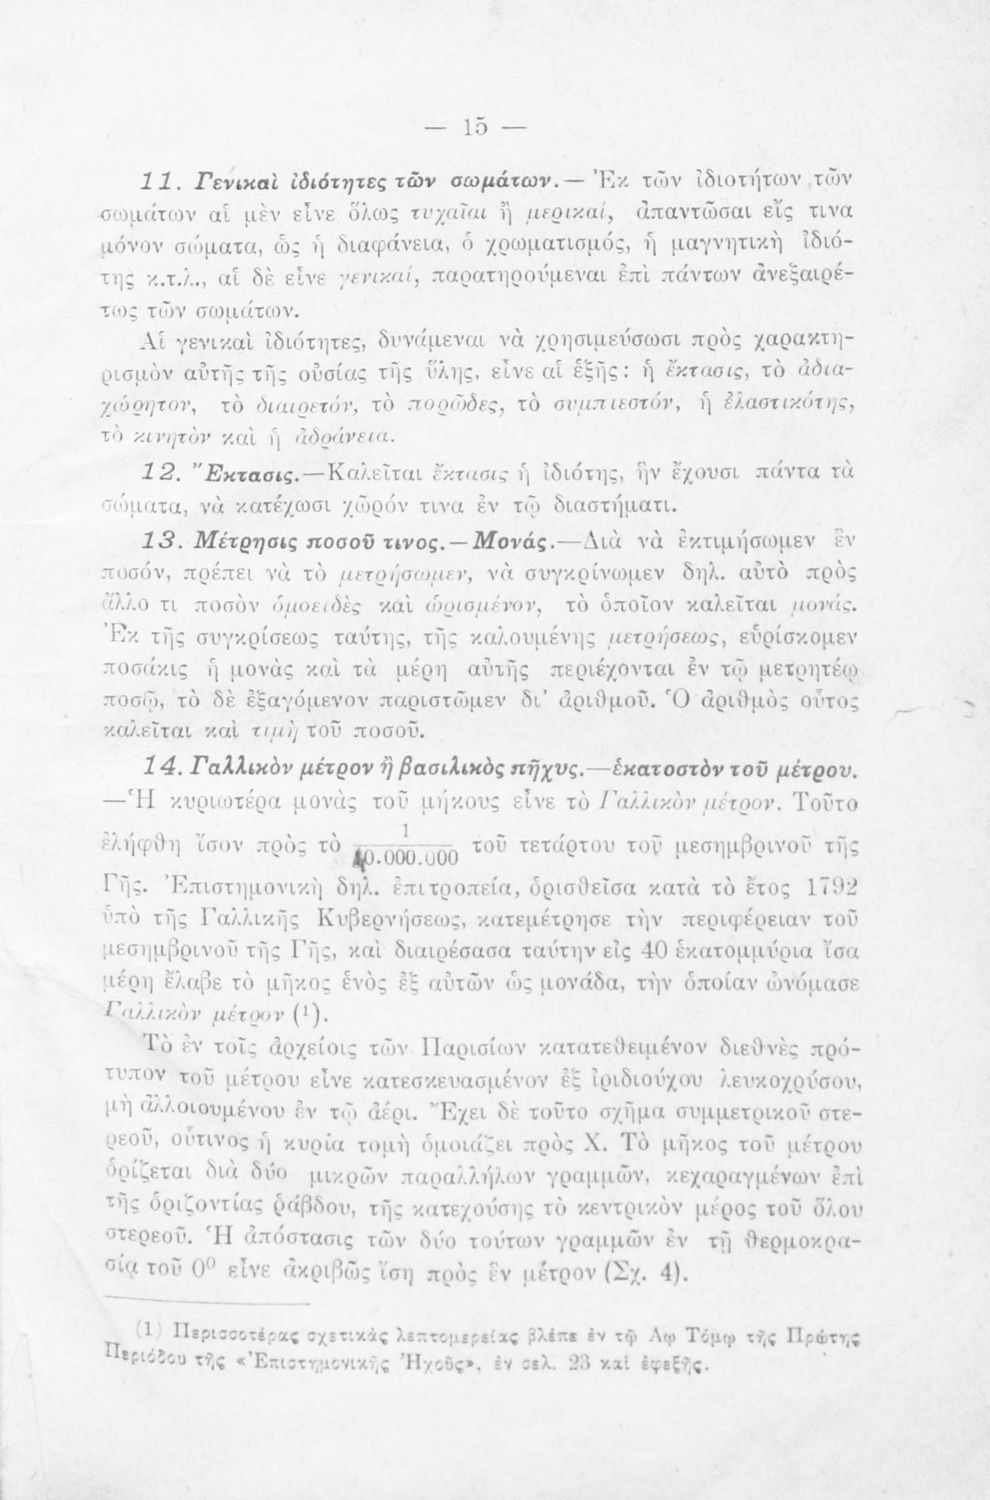 — 15 —
11. Γενικαὶ ἰδιότητες τῶν σωμάτων.— Ἐκ τῶν ἰδιοτήτων τῶν
σωμάτων αἱ μὲν εἶνε ὅλως τυχαῖαι ἢ μερικαί, ἀπαντῶσαι εἴς τινα
μόνον σώματα, ὡς ἡ διαφάνεια, ὁ χρωματισμός, ἡ μαγνητικὴ ἰδιό-
της κ.τ.λ., αἱ δὲ εἶνε γενικαί, παρατηρούμεναι ἐπὶ πάντων ἀνεξαιρέ-
τως τῶν σωμάτων.
Αἱ γενικαὶ ἰδιότητες, δυνάμεναι νὰ χρησιμεύσωσι πρὸς χαρακτη-
ρισμὸν αὐτῆς τῆς οὐσίας τῆς ὕλης, εἶνε αἱ ἑξῆς: ἡ ἔκτασις, τὸ ἀδια-
χώρητον, τὸ διαιρετόν, τὸ πορῶδες, τὸ συμπιεστόν, ἡ ἐλαστικότης,
τὸ κινητὸν καὶ ἡ ἀδράνεια.
12. Ἔκτασις.—Καλεῖται ἔκτασις ἡ ἰδιότης, ἣν ἔχουσι πάντα τὰ
σώματα, νὰ κατέχωσι χῶρόν τινα ἐν τῷ διαστήματι.
13. Μέτρησις ποσοῦ τινος.—Μονάς.—Διὰ νὰ ἐκτιμήσωμεν ἓν
ποσόν, πρέπει νὰ τὸ μετρήσωμεν, νὰ συγκρίνωμεν δηλ. αὐτὸ πρὸς
ἄλλο τι ποσὸν ὁμοειδὲς καὶ ὡρισμένον, τὸ ὁποῖον καλεῖται μονάς.
Ἐκ τῆς συγκρίσεως ταύτης, τῆς καλουμένης μετρήσεως, εὑρίσκομεν
ποσάκις ἡ μονὰς καὶ τὰ μέρη αὐτῆς περιέχονται ἐν τῷ μετρητέῳ
ποσῷ, τὸ δὲ ἐξαγόμενον παριστῶμεν δι' ἀριθμοῦ. Ὁ ἀριθμὸς οὗτος
καλεῖται καὶ τιμὴ τοῦ ποσοῦ.
14. Γαλλικὸν μέτρον ἢ βασιλικὸς πῆχυς.—ἑκατοστὸν τοῦ μέτρου.
—Ἡ κυριωτέρα μονὰς τοῦ μήκους εἶνε τὸ Γαλλικὸν μέτρον. Τοῦτο
ἐλήφθη ἴσον πρὸς τὸ 1/10.000.000 τοῦ τετάρτου τοῦ μεσημβρινοῦ τῆς
Γῆς. Ἐπιστημονικὴ δηλ. ἐπιτροπεία, ὁρισθεῖσα κατὰ τὸ ἔτος 1792
ὑπὸ τῆς Γαλλικῆς Κυβερνήσεως, κατεμέτρησε τὴν περιφέρειαν τοῦ
μεσημβρινοῦ τῆς Γῆς, καὶ διαιρέσασα ταύτην εἰς 40 ἑκατομμύρια ἴσα
μέρη ἔλαβε τὸ μῆκος ἑνὸς ἐξ αὐτῶν ὡς μονάδα, τὴν ὁποίαν ὠνόμασε
Γαλλικὸν μέτρον (¹).
Τὸ ἐν τοῖς ἀρχείοις τῶν Παρισίων κατατεθειμένον διεθνὲς πρό-
τυπον τοῦ μέτρου εἶνε κατεσκευασμένον ἐξ ἰριδιούχου λευκοχρύσου,
μὴ ἀλλοιουμένου ἐν τῷ ἀέρι. Ἔχει δὲ τοῦτο σχῆμα συμμετρικοῦ στε-
ρεοῦ, οὗτινος ἡ κυρία τομὴ ὁμοιάζει πρὸς Χ. Τὸ μῆκος τοῦ μέτρου
ὁρίζεται διὰ δύο μικρῶν παραλλήλων γραμμῶν, κεχαραγμένων ἐπὶ
τῆς ὁριζοντίας ῥάβδου, τῆς κατεχούσης τὸ κεντρικὸν μέρος τοῦ ὅλου
στερεοῦ. Ἡ ἀπόστασις τῶν δύο τούτων γραμμῶν ἐν τῇ θερμοκρα-
σίᾳ τοῦ 0⁰ εἶνε ἀκριβῶς ἴση πρὸς ἓν μέτρον (Σχ. 4).
(1) Περισσοτέρας σχετικὰς λεπτομερείας βλέπε ἐν τῷ Αῳ Τόμῳ τῆς Πρώτης
Περιόδου τῆς «Ἐπιστημονικῆς Ἠχοῦς», ἐν σελ. 23 καὶ ἐφεξῆς.